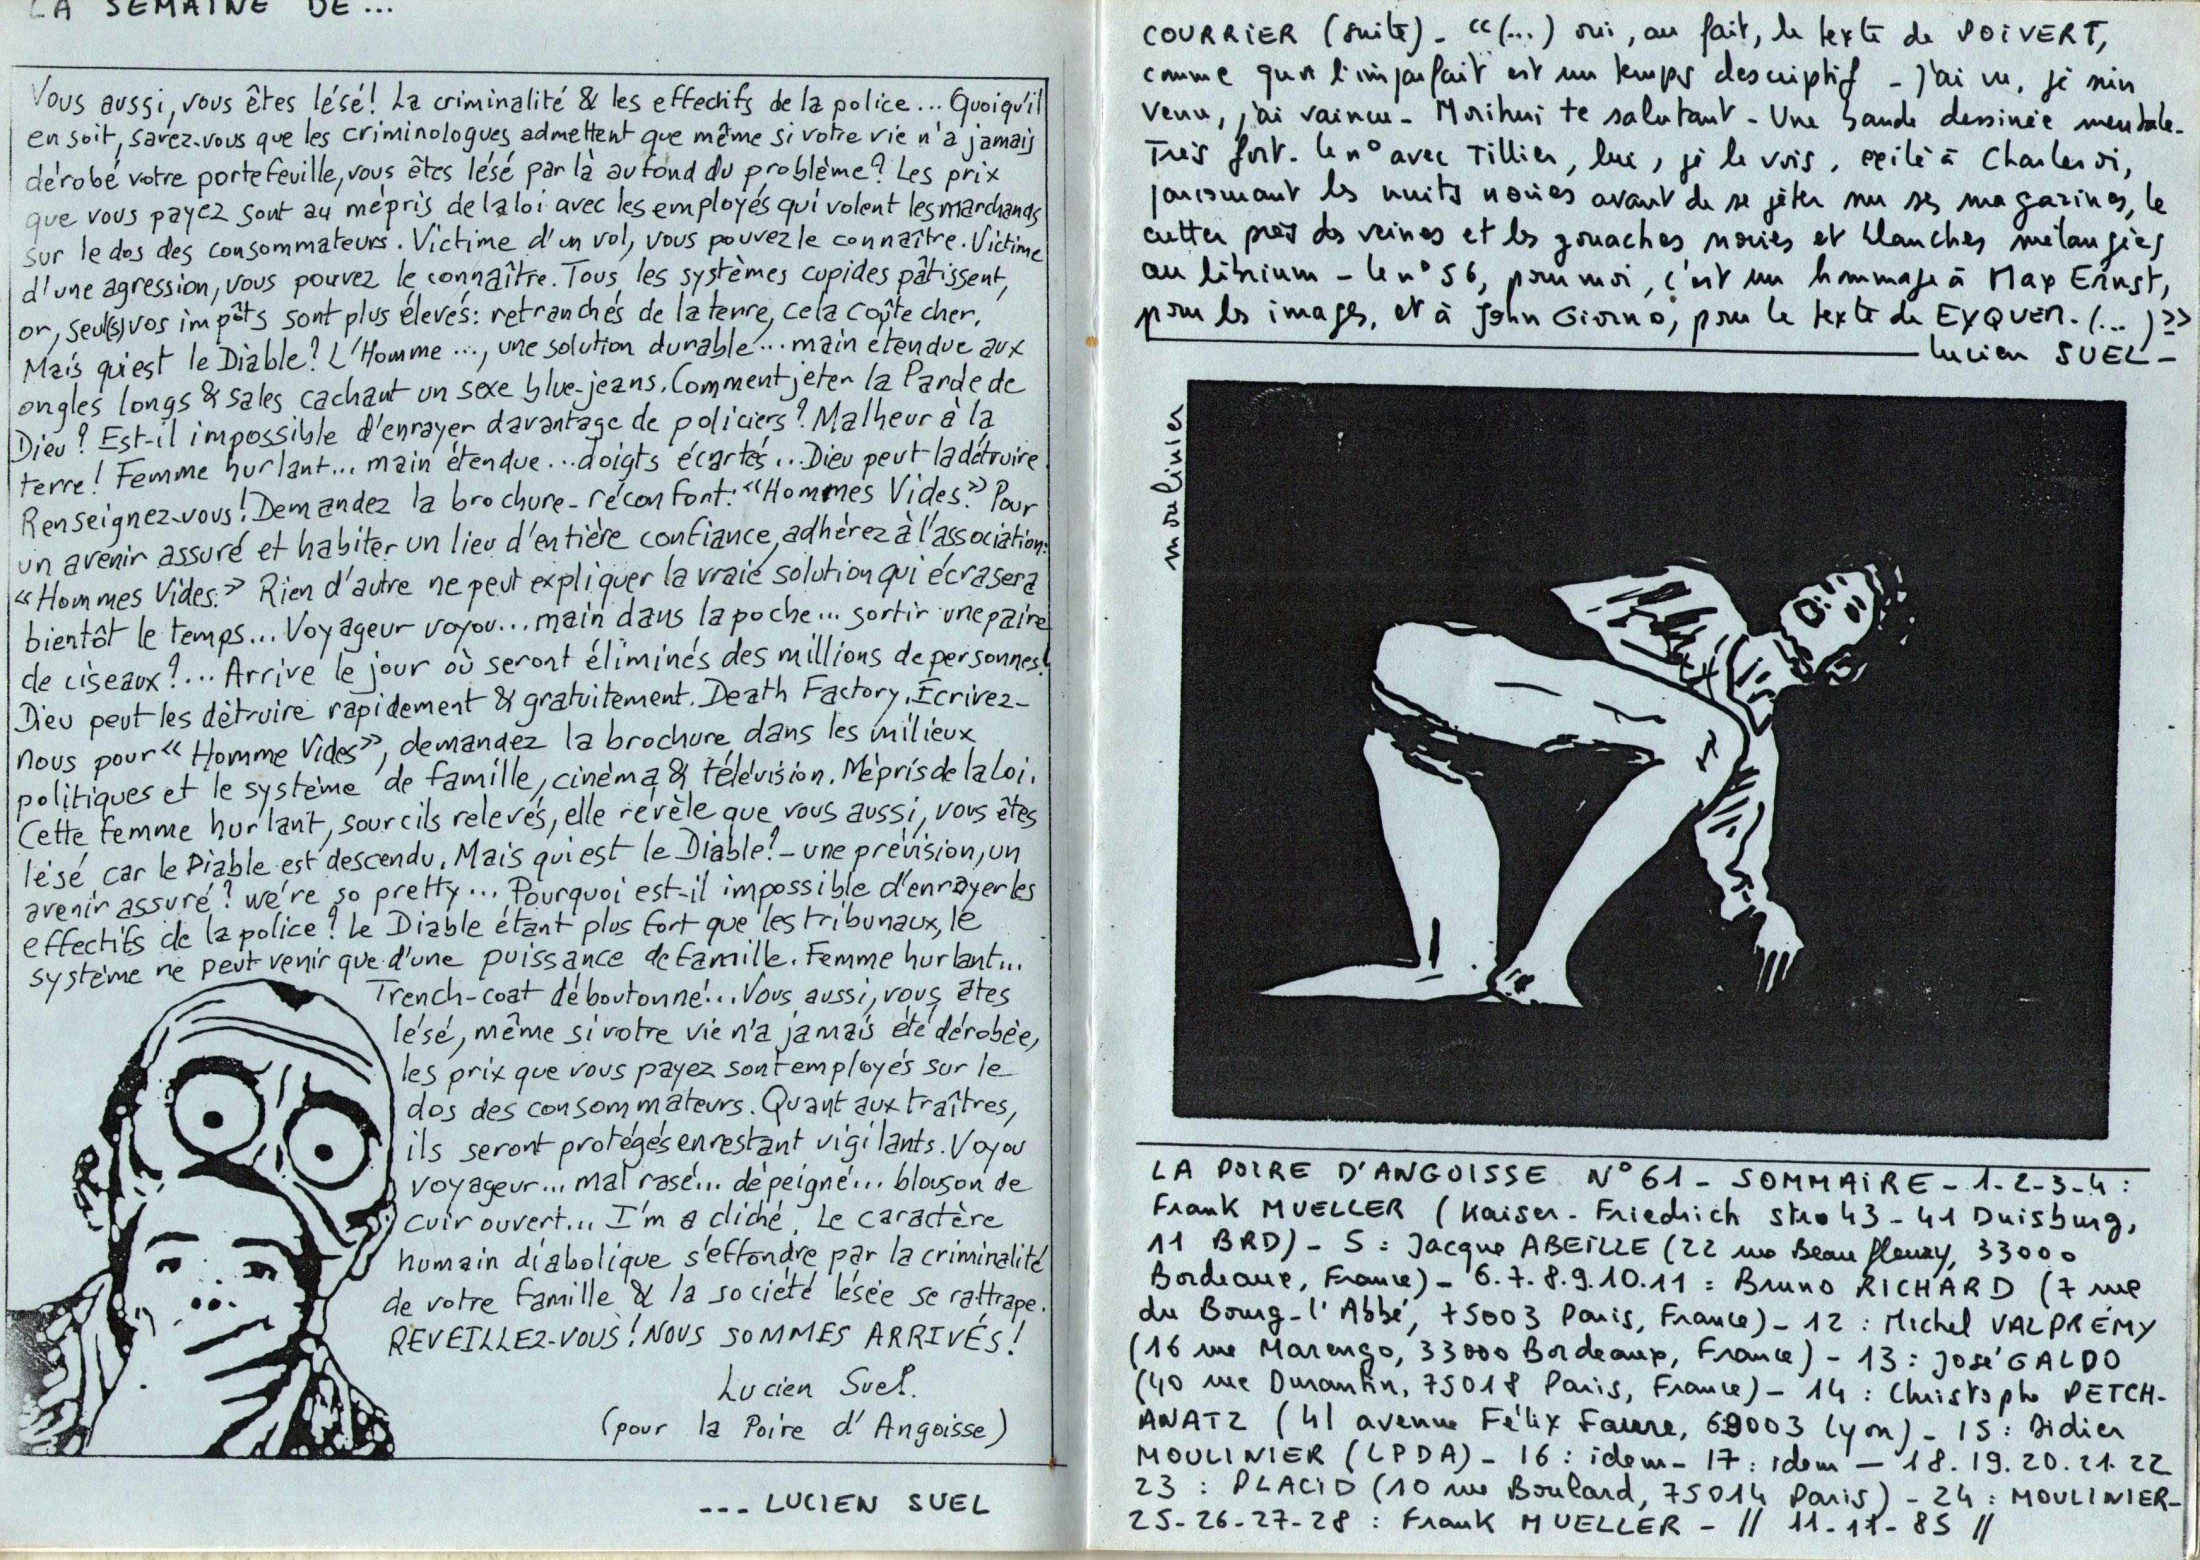 LA SEMAINE DE...
Vous aussi, vous êtes lésé! La criminalité & les effectifs de la police... Quoiqu'il
en soit, savez-vous que les criminologues admettent que même si votre vie n'a jamais
dérobé votre portefeuille, vous êtes lésé par là au fond du problème? Les prix
que vous payez sont au mépris de la loi avec les employés qui volent les marchands
sur le dos des consommateurs. Victime d'un vol, vous pouvez le connaître. Victime
d'une agression, vous pouvez le connaître. Tous les systèmes cupides pâtissent,
or, seul(s) vos impôts sont plus élevés: retranchés de la terre, cela coûte cher.
Mais qui est le Diable? L'Homme..., une solution durable... main étendue aux
ongles longs & sales cachant un sexe blue-jeans. Comment jeter la Parde de
Dieu? Est-il impossible d'enrayer davantage de policiers? Malheur à la
terre! Femme hurlant... main étendue... doigts écartés... Dieu peut la détruire.
Renseignez-vous! Demandez la brochure-réconfort: "Hommes Vides." Pour
un avenir assuré et habiter un lieu d'entière confiance, adhérez à l'association:
«Hommes Vides.» Rien d'autre ne peut expliquer la vraie solution qui écrasera
bientôt le temps... Voyageur voyou... main dans la poche... sortir une paire
de ciseaux?... Arrive le jour où seront éliminés des millions de personnes!
Dieu peut les détruire rapidement & gratuitement. Death Factory. Écrivez-
nous pour «Homme Vides», demandez la brochure dans les milieux
politiques et le système de famille, cinéma & télévision. Mépris de la loi.
Cette femme hurlant, sourcils relevés, elle révèle que vous aussi, vous êtes
lésé car le Diable est descendu. Mais qui est le Diable? - une prévision, un
avenir assuré? we're so pretty... Pourquoi est-il impossible d'enrayer les
effectifs de la police? Le Diable étant plus fort que les tribunaux, le
système ne peut venir que d'une puissance de famille. Femme hurlant...
Trench-coat déboutonné!.. Vous aussi, vous êtes
lésé, même si votre vie n'a jamais été dérobée,
les prix que vous payez sont employés sur le
dos des consommateurs. Quant aux traîtres,
ils seront protégés en restant vigilants. Voyou
voyageur... mal rasé... dépeigné... blouson de
cuir ouvert... I'm a cliché. Le caractère
humain diabolique s'effondre par la criminalité
de votre famille & la société lésée se rattrape.
REVEILLEZ-VOUS! NOUS SOMMES ARRIVÉS!
Lucien Suel.
(pour la Poire d'Angoisse)
--- LUCIEN SUEL
COURRIER (suite) - «(...) oui, au fait, le texte de POIVERT,
comme quoi l'imparfait est un temps descriptif - j'ai vu, je suis
venu, j'ai vaincu - Morituri te salutant - Une bande dessinée mentale.
Très fort. le n° avec Tillier, lui, je le vois, exilé à Charleroi,
parcourant les nuits noires avant de se jeter sur ses magazines, le
cutter près des veines et les gouaches noires et blanches mélangées
au librium - le n° 56, pour moi, c'est un hommage à Max Ernst,
pour les images, et à John Giorno, pour le texte de EYQUEM. (...)»
lucien SUEL -
moulinier
LA POIRE D'ANGOISSE N° 61 - SOMMAIRE - 1-2-3-4 :
Frank MUELLER (Kaiser-Friedrich Str. 43 - 41 Duisburg,
11 BRD) - 5 : Jacque ABEILLE (22 rue Beaufleury, 33000
Bordeaux, France) - 6.7.8.9.10.11 : Bruno RICHARD (7 rue
du Bourg-l'Abbé, 75003 Paris, France) - 12 : Michel VALPRÉMY
(16 rue Marengo, 33000 Bordeaux, France) - 13 : José GALDO
(40 rue Durantin, 75018 Paris, France) - 14 : Christophe PETCH-
ANATZ (41 avenue Félix Faure, 69003 Lyon) - 15 : Didier
MOULINIER (LPDA) - 16 : idem - 17 : idem - 18.19.20.21.22
23 : PLACID (10 rue Boulard, 75014 Paris) - 24 : MOULINIER -
25-26-27-28 : Frank MUELLER - // 11-11-85 //